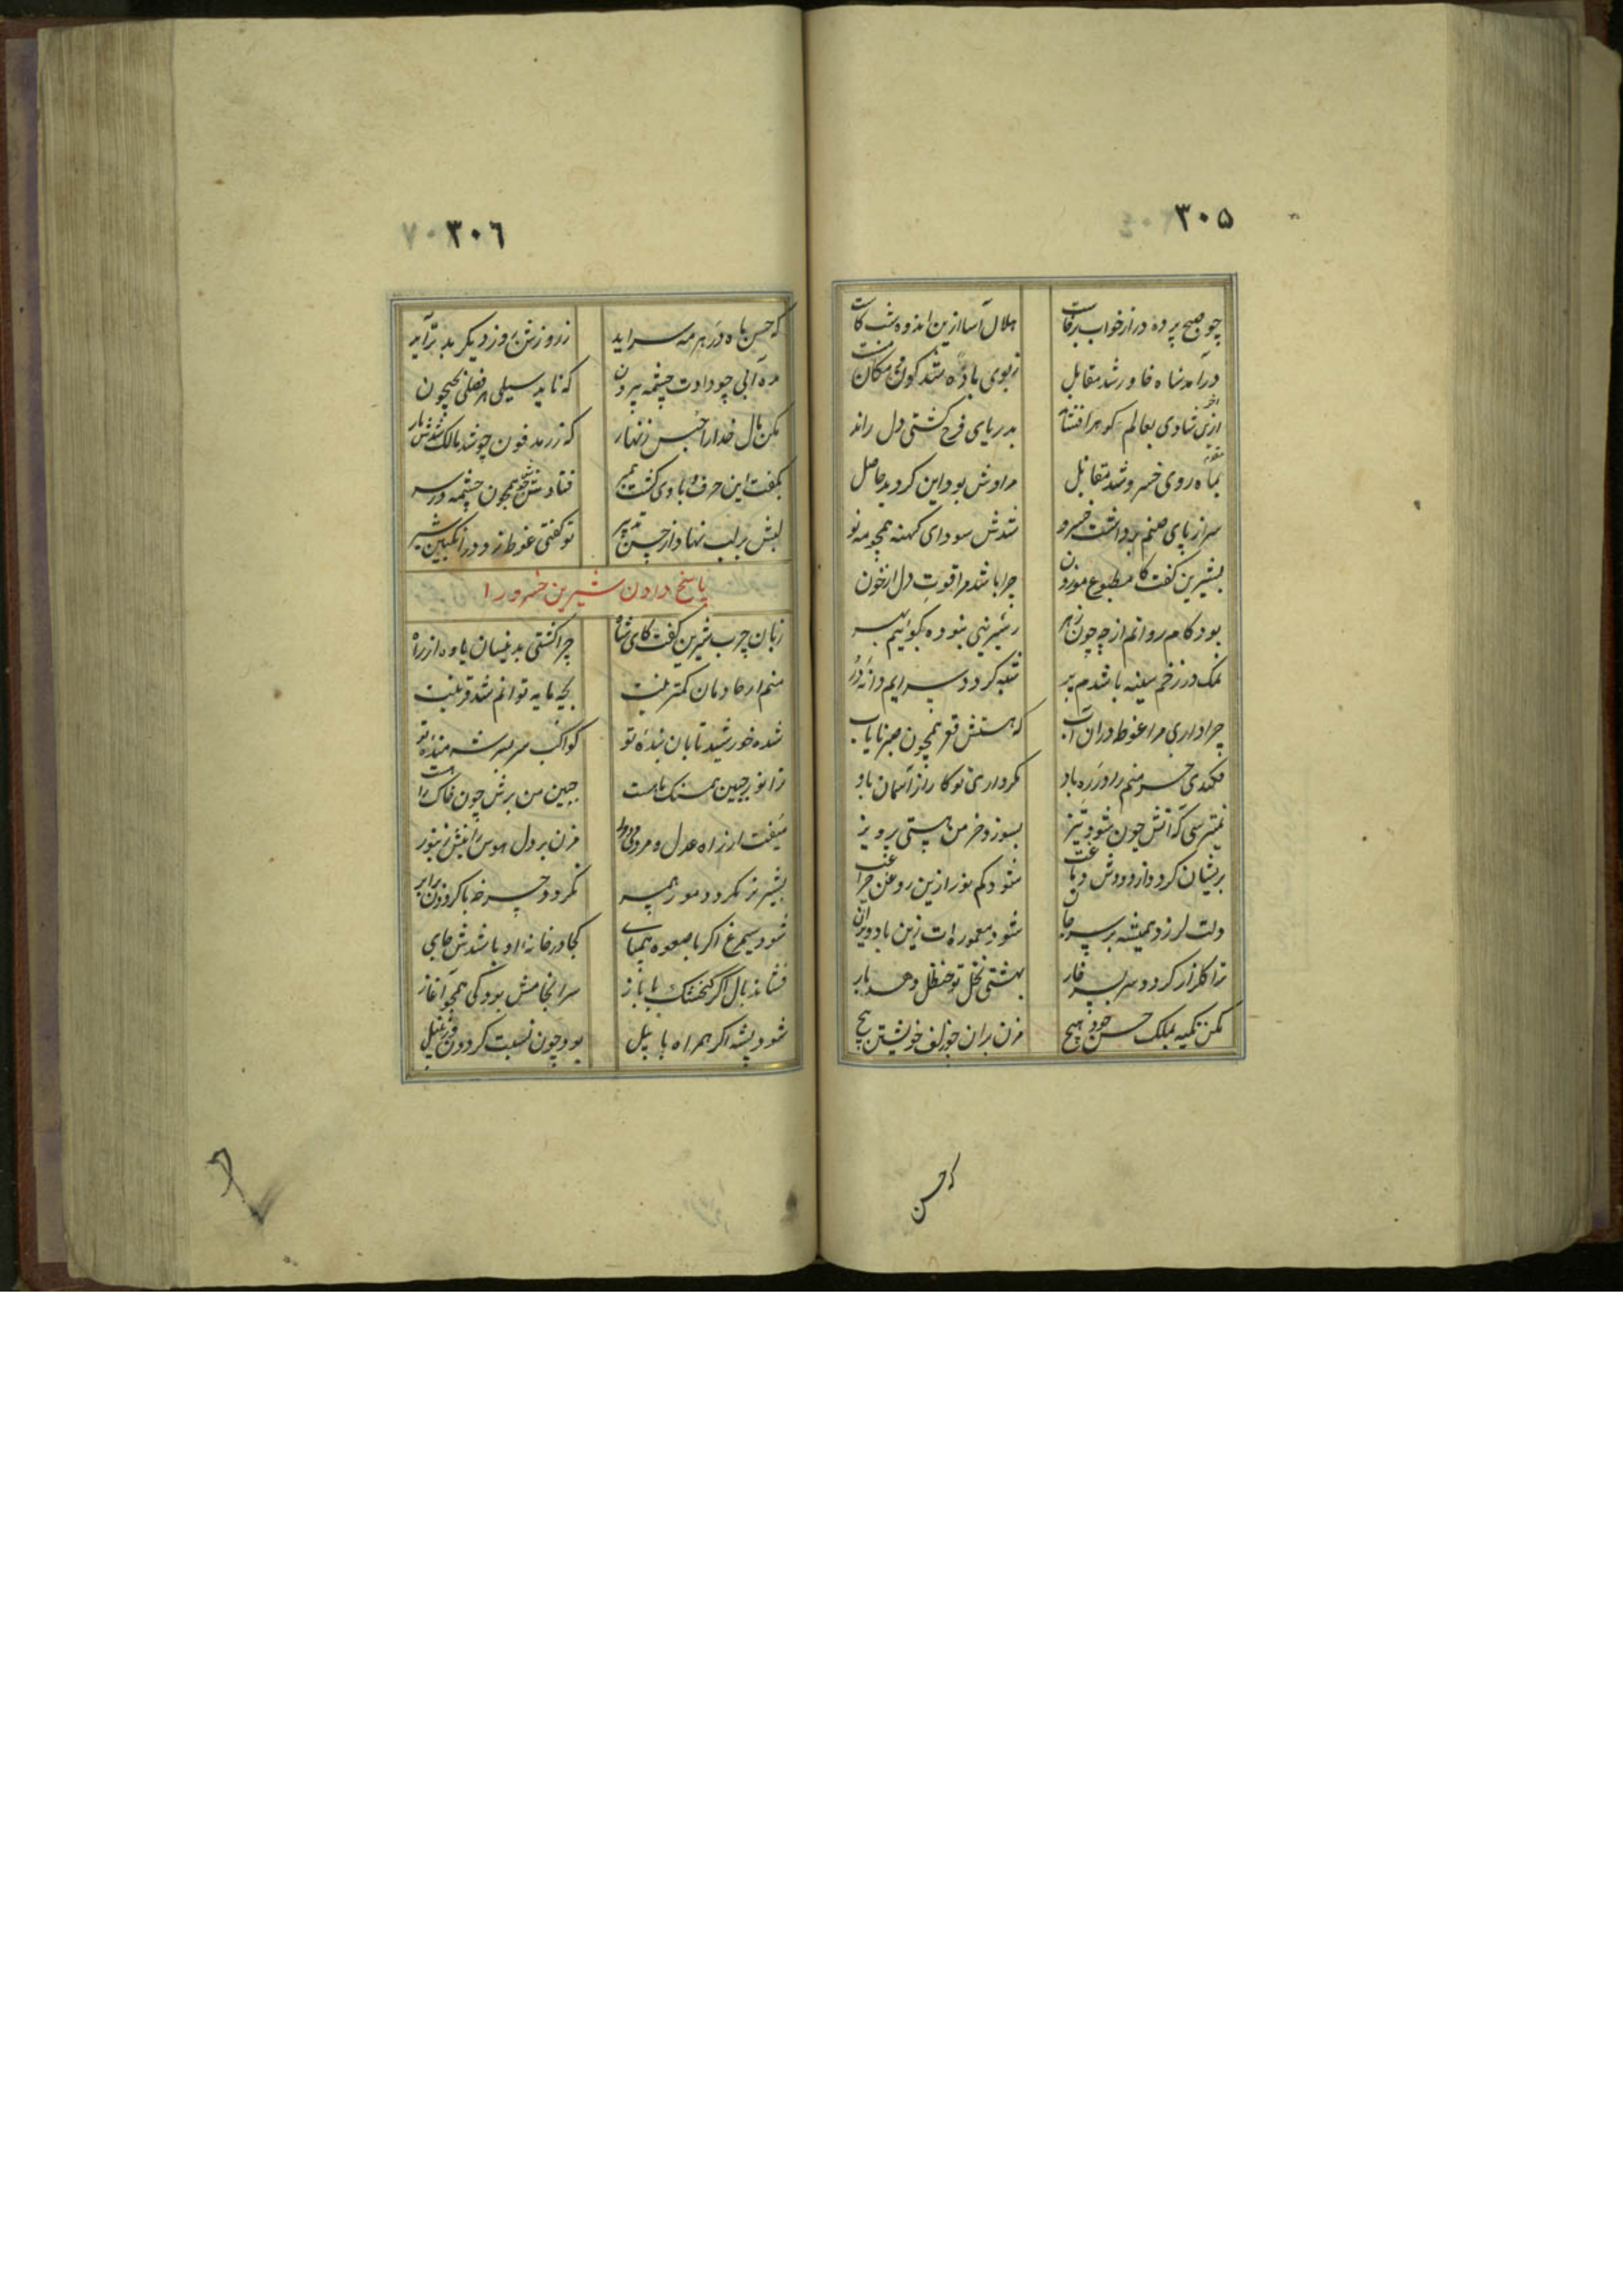 ۳۰۵
چو صبح پرده در از خواب برخاست هلال آسا ازین اندوه شب کاست
درآمد شاه خاور شد مقابل ز بوی باده شد
ازین شادی بعالم گوهر افشاند بدریای فرح کشتی دل راند
بماه روی خسرو شد مقابل مرادش بود این گردید حاصل
سر از پای صنم برداشت خسرو شدش سودای کهنه همچو مه نو
بشیرین گفت کای مطبوع موزون چرا باشد مرا قوت دل از خون
بود کام روانم از چه چون زهر ز شیرینی نبوده بهر
نمک در زخم سینه باشدم پر سرایم دانه در
چرا داری مرا غوط در آن آب که هستش قعر همچون صبر نایاب
فکندی خرمنم را در ره باد مگر داری تو کار از آسمان یاد
نمیترسی که آتش چون شود تیز بسوزد خرمن هستی پرویز
پریشان گردد از دودش دماغت شود کم نور ازین روغن چراغت
دلت لرزد همیشه بر سر جان شود معموره‌ات زین باد ویران
ترا گلزار گردد سربسر خار بهشتی نخل تو حنظل دهد بار
مکن تکیه بملک حسن خود هیچ مزن بر آن چو زلف خویشتن پیچ
که حسن
۳۰۶
که حسن ماه در هر مه سرآید ز روزش روز دیگر بدتر آید
ده آبی چو دادت چشمه بیرون که ناید سیلی هر فصلی بجیحون
مکن مال خدا را حبس زنهار که زر مدفون چو شد مالک شدش مار
بگفت این حرف و با وی گشت همسر فتادش خوی همچون چشمه در سر
لبش بر لب نهاد از حسن تدبیر تو گفتی غوط زد در انگبین شیر
پاسخ دادن شیرین خسرو را
زبان چرب شیرین گفت کای شاه چرا گشتی بدینسان یاوه از راه
منم از خادمان کمترینت بچه مایه توانم شد قرینت
شده خورشید تابان بنده تو کواکب سربسر شرمنده تو
ترا نور جبین همسنگ ماهست جبین من برش چون خاک راهست
میفت از راه عدل و مردمی دور مزن بر دل هوس را نیش زنبور
بشیر نر نگردد مور همسر نگردد چرخ با گردون برابر
شود سیمرغ اگر با صعوه همپای کجا در خانه او باشدش جای
فشاند بال اگر گنجشک با باز سرانجامش بود کی همچو آغاز
شود پشه اگر همراه با پیل بود چون نسبت گردون و نیل